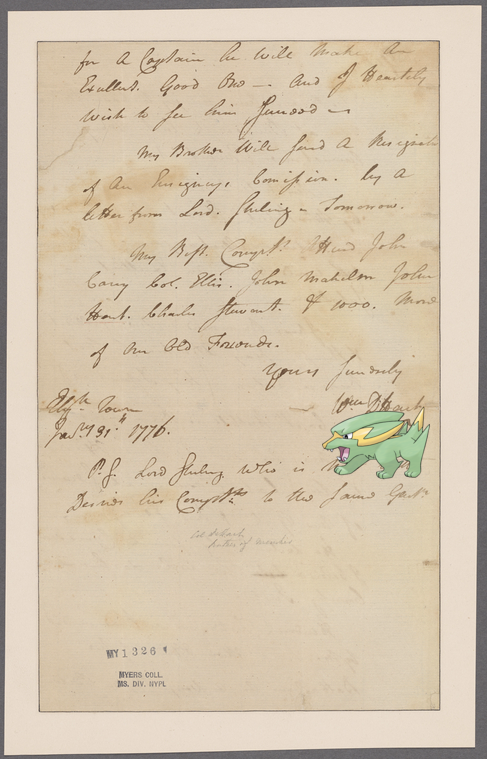 for A Captain he Will Make An
Exellent Good One — And I Heartily
Wish to See him Suceed —
My Brother Will Send A Resignat
of An Ensigncys Comission. by A
letter from Lord. Sterling — Tomorrow.
My Best. Compts. Hend John
Camp Col. Ellis. John Mehelm John
Hart. Charles Stewart. & 1000. More
of our Old Freends.
Yours Sincerly
Wm D Hart
Elizth. Town
Jany. 31st. 1776.
P.S. Lord Sterling Who is
Desires his Compts. to the Same
Col. DeHart
MY 1326
MYERS COLL.
MS. DIV. NYPL